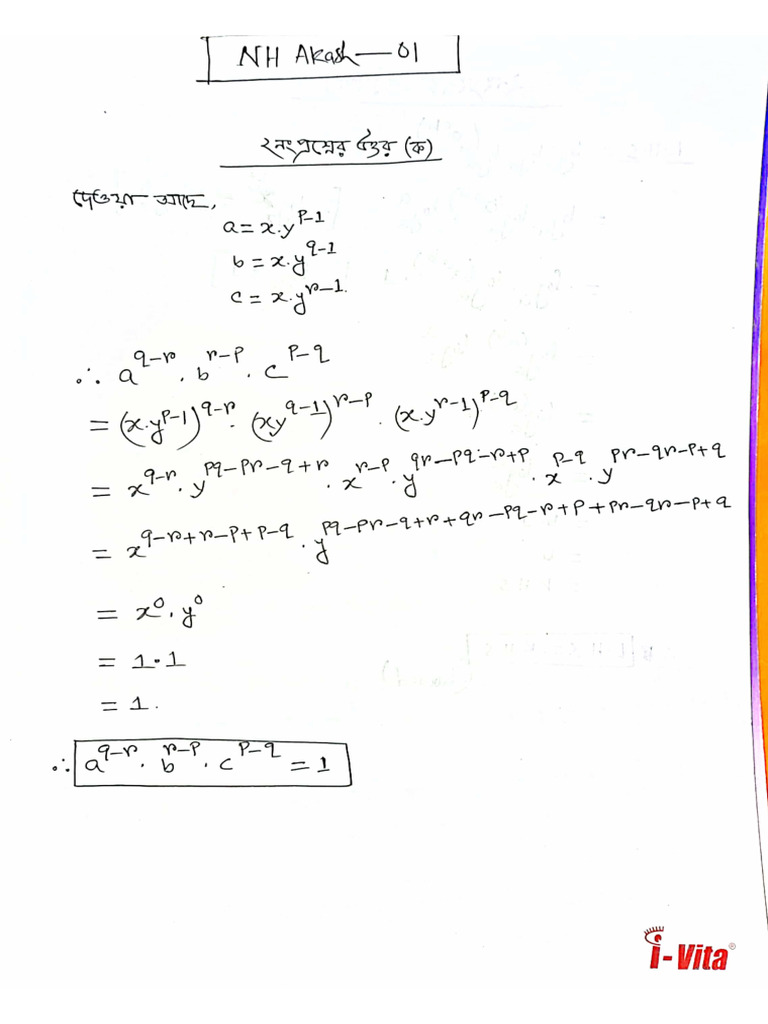 NH Akash — 01
২নং প্রশ্নের উত্তর (ক)
দেওয়া আছে,
a = x.y^{p-1}
b = x.y^{q-1}
c = x.y^{r-1}.
∴ a^{q-r} . b^{r-p} . c^{p-q}
= (x.y^{p-1})^{q-r} . (xy^{q-1})^{r-p} . (x.y^{r-1})^{p-q}
= x^{q-r} . y^{pq-pr-q+r} . x^{r-p} . y^{qr-pq-r+p} . x^{p-q} . y^{pr-qr-p+q}
= x^{q-r+r-p+p-q} . y^{pq-pr-q+r+qr-pq-r+p+pr-qr-p+q}
= x^0 . y^0
= 1.1
= 1.
∴ a^{q-r} . b^{r-p} . c^{p-q} = 1
i-Vita®